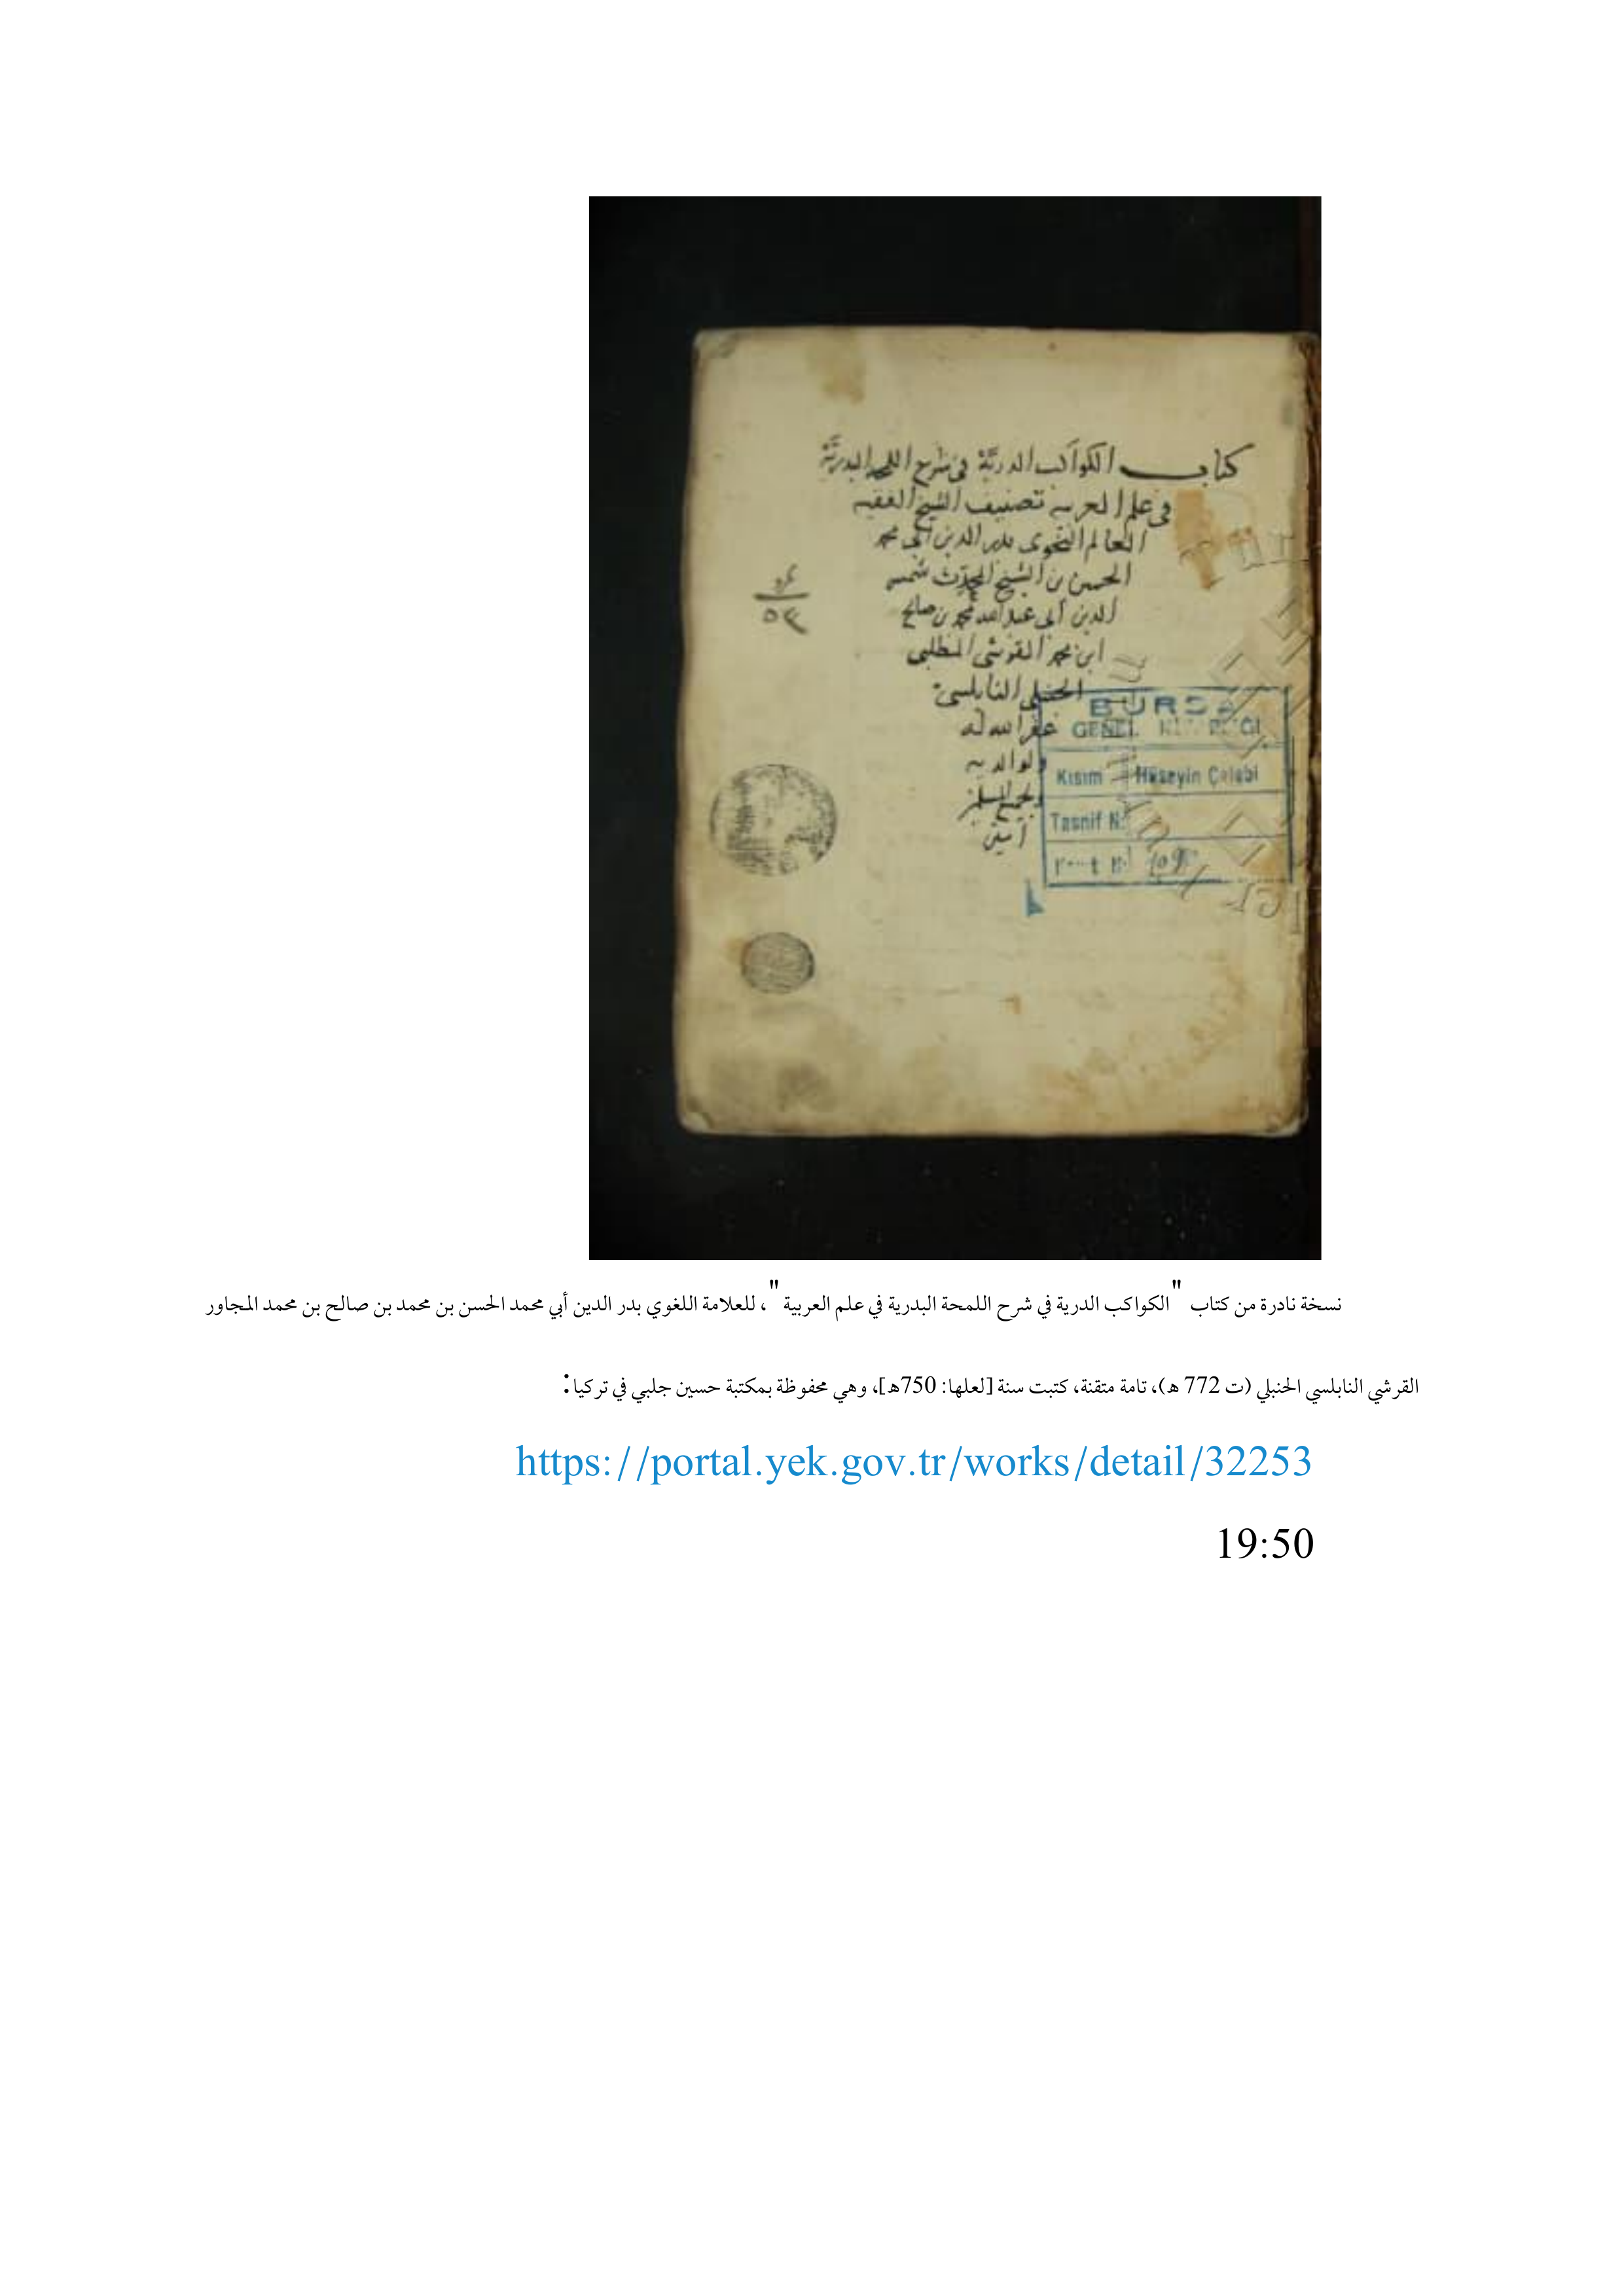 كتاب الكواكب الدرية في شرح اللمحة البدرية
في علم العربية تصنيف الشيخ الفقيه
العالم النحوي بدر الدين أبي محمد
الحسن بن الشيخ المحدث شمس
الدين أبي عبد الله محمد بن صالح
ابن محمد القرشي المطلبي
الحنبلي النابلسي
غفر الله له
ولوالديه
ولجميع المسلمين
آمين
BURSA
GENEL
Kısım Hüseyin Çelebi
Tasnif N:
نسخة نادرة من كتاب "الكواكب الدرية في شرح اللمحة البدرية في علم العربية"، للعلامة اللغوي بدر الدين أبي محمد الحسن بن محمد بن صالح بن محمد المجاور
القرشي النابلسي الحنبلي (ت 772 هـ)، تامة متقنة، كتبت سنة [لعلها: 750هـ]، وهي محفوظة بمكتبة حسين جلبي في تركيا:
https://portal.yek.gov.tr/works/detail/32253
19:50